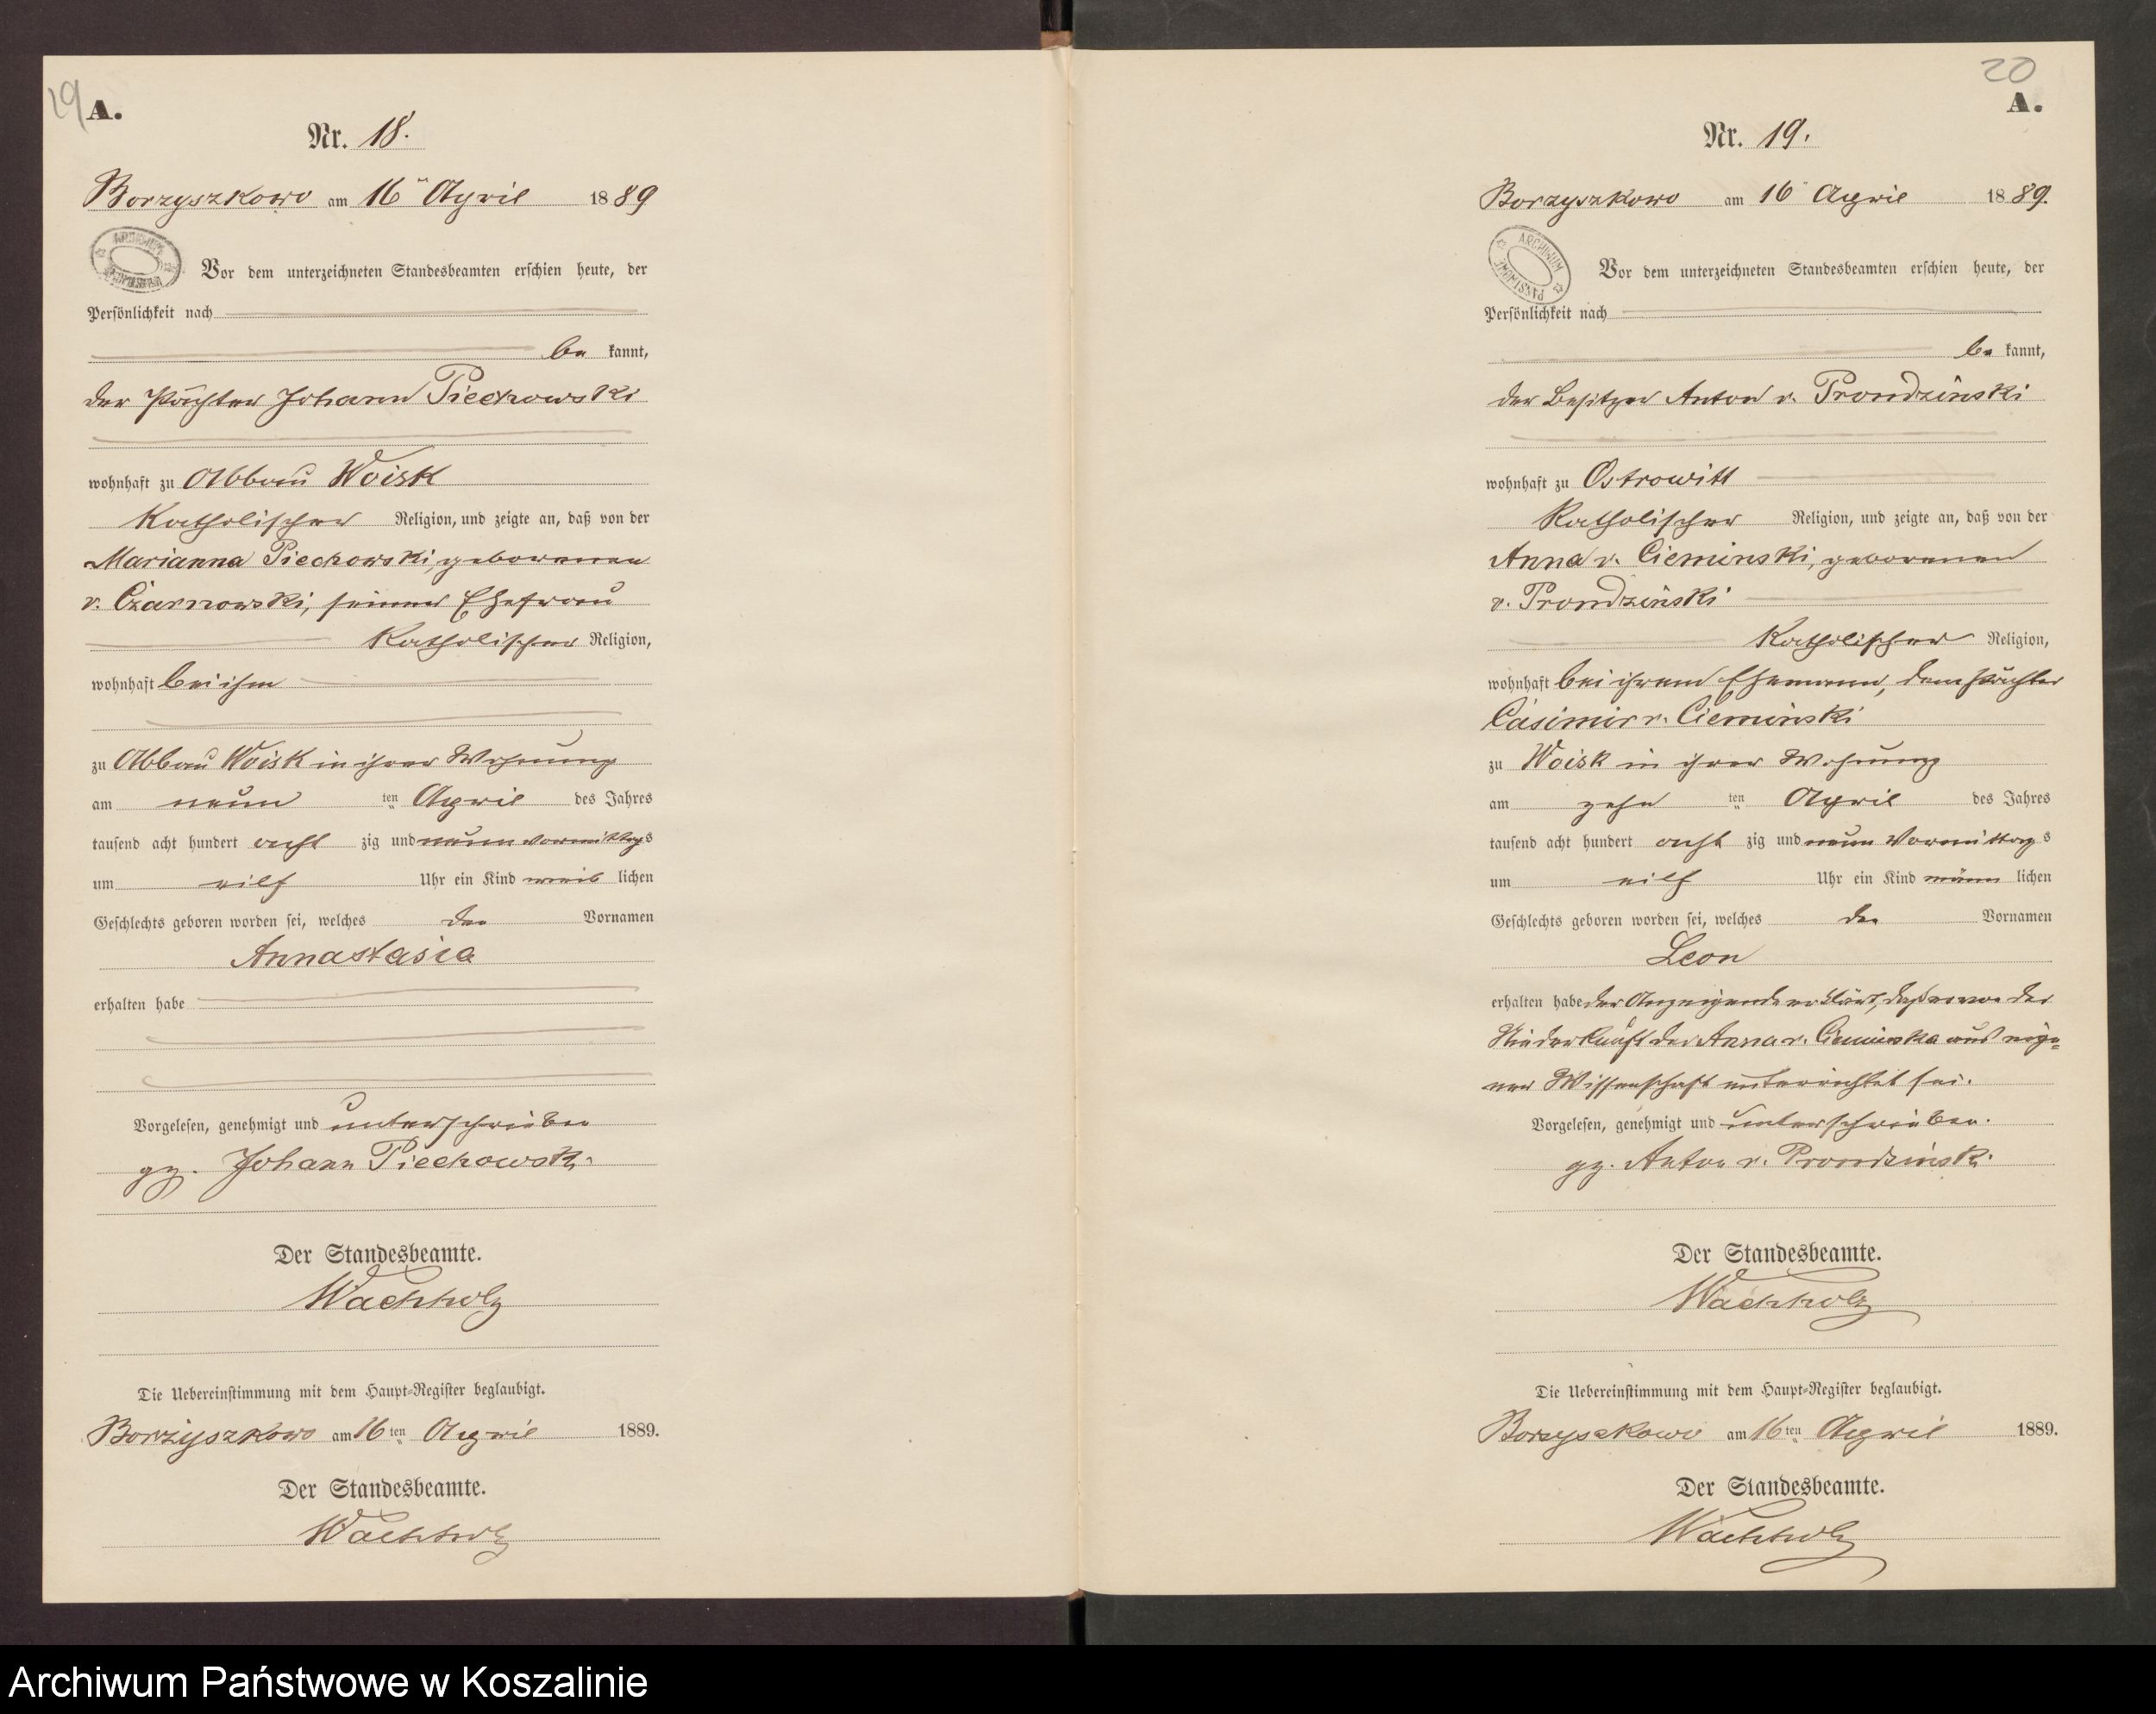 19
A.
Nr. 18.
Borzyszkowo am 16ten April 1889
Vor dem unterzeichneten Standesbeamten erschien heute, der
Persönlichkeit nach
be kannt,
der Pächter Johann Piechowski
wohnhaft zu Abbau Woisk
Katholischer Religion, und zeigte an, daß von der
Marianna Piechowski, geborenen
v. Czarnowski, seiner Ehefrau
Katholischer Religion,
wohnhaft bei ihm
zu Abbau Woisk in ihrer Wohnung
am neun ten April des Jahres
tausend acht hundert acht zig und neun Vormittags
um eilf Uhr ein Kind weib lichen
Geschlechts geboren worden sei, welches den Vornamen
Annastasia
erhalten habe
Vorgelesen, genehmigt und unterschrieben
gz. Johann Piechowski
Der Standesbeamte.
Wachholz
Die Uebereinstimmung mit dem Haupt-Register beglaubigt.
Borzyszkowo am 16ten April 1889.
Der Standesbeamte.
Wachholz
20
A.
Nr. 19.
Borzyszkowo am 16 April 1889.
ARCHIWUM PAŃSTWOWE
Vor dem unterzeichneten Standesbeamten erschien heute, der
Persönlichkeit nach
be kannt,
der Besitzer Anton v. Prondzinski
wohnhaft zu Ostrowitt
Katholischer Religion, und zeigte an, daß von der
Anna v. Cieminski, geborenen
v. Prondzinski
Katholischer Religion,
wohnhaft bei ihrem Ehemann, dem Pächter
Casimir v. Cieminski
zu Woisk in ihrer Wohnung
am zehn ten April des Jahres
tausend acht hundert acht zig und neun Vormittags
um eilf Uhr ein Kind männ lichen
Geschlechts geboren worden sei, welches den Vornamen
Leon
erhalten habe der Anzeigende erklärt, daß er von der
Niederkunft der Anna v. Cieminska aus eige=
ner Wissenschaft unterrichtet sei.
Vorgelesen, genehmigt und unterschrieben.
gz. Anton v. Prondzinski
Der Standesbeamte.
Wachholz
Die Uebereinstimmung mit dem Haupt-Register beglaubigt.
Borzyszkowo am 16ten April 1889.
Der Standesbeamte.
Wachholz
Archiwum Państwowe w Koszalinie